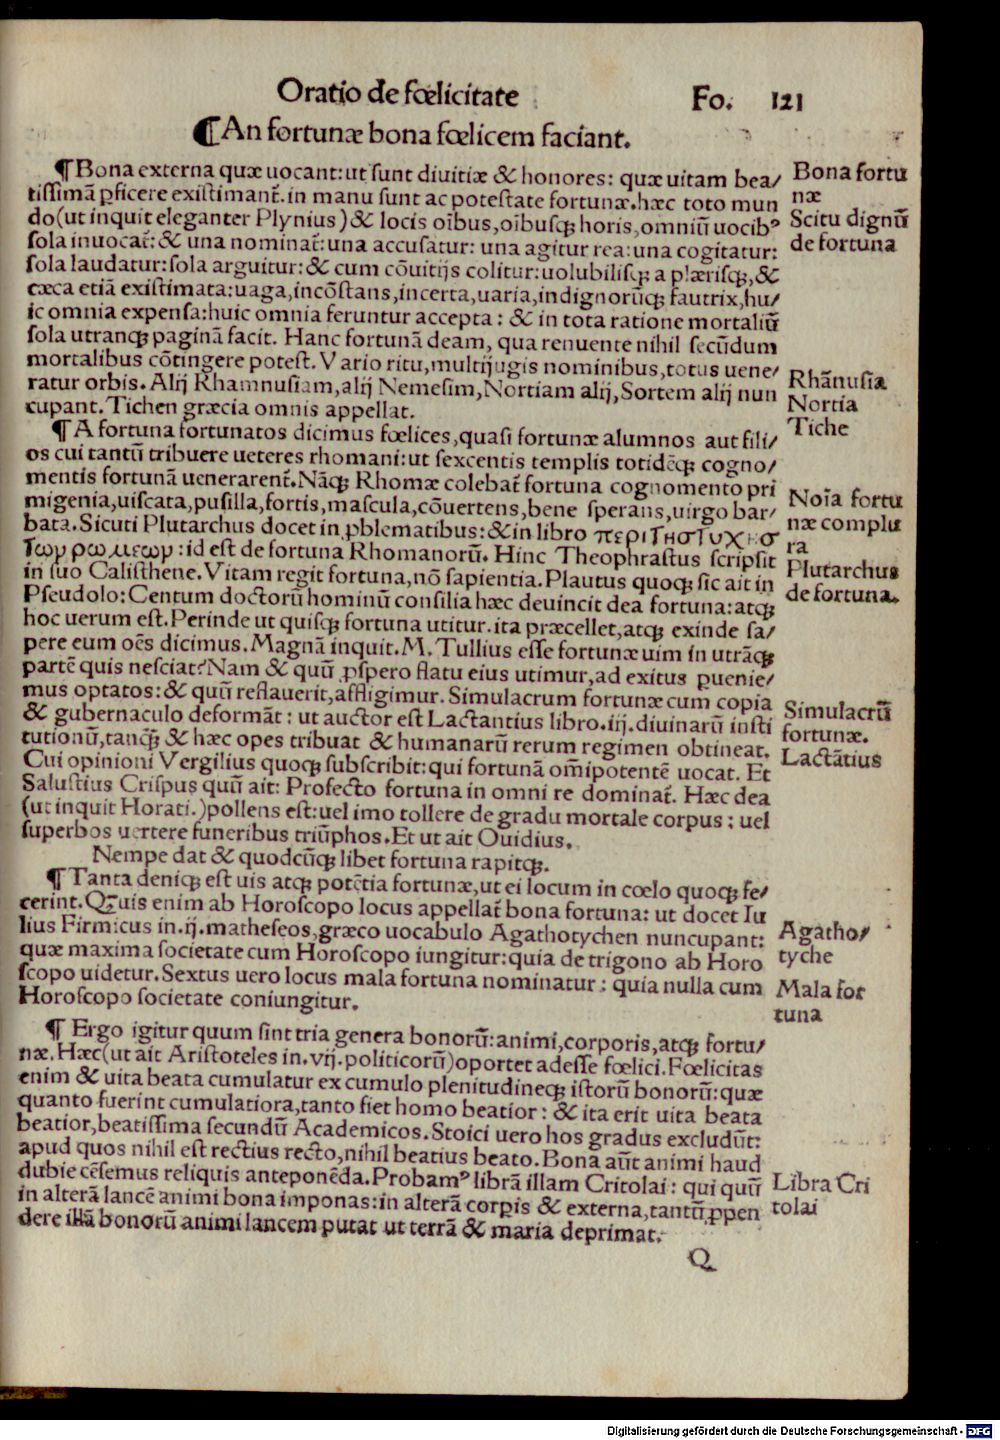 Oratio de fœlicitate Fo. 121
¶An fortunæ bona fœlicem faciant.
¶Bona externa quæ uocant: ut sunt diuitiæ & honores: quæ uitam bea/
tissimā ꝑficere existimant᷑. in manu sunt ac potestate fortunæ. hæc toto mun
do (ut inquit eleganter Plynius) & locis oībus, oībusqꝫ horis, omniū uocibꝰ
sola inuocat᷑: & una nominat᷑: una accusatur: una agitur rea: una cogitatur:
sola laudatur: sola arguitur: & cum cōuitijs colitur: uolubilisqꝫ a plærisqꝫ, &
cæca etiā existimata: uaga, incōstans, incerta, uaria, indignorūqꝫ fautrix, hu/
ic omnia expensa: huic omnia feruntur accepta: & in tota ratione mortaliū
sola utranqꝫ paginā facit. Hanc fortunā deam, qua renuente nihil secūdum
mortalibus cōtingere potest. Vario ritu, multijugis nominibus, totus uene/
ratur orbis. Alij Rhamnusiam, alij Nemesim, Nortiam alij, Sortem alij nun
cupant. Tichen græcia omnis appellat.
¶A fortuna fortunatos dicimus fœlices, quasi fortunæ alumnos aut fili/
os cui tantū tribuere ueteres rhomani: ut sexcentis templis totidēqꝫ cogno/
mentis fortunā uenerarent᷑. Nāqꝫ Rhomæ colebat᷑ fortuna cognomento pri
migenia, uiscata, pusilla, fortis, mascula, cōuertens, bene sperans, uirgo bar/
bata. Sicuti Plutarchus docet in ꝓblematibus: & in libro περιτηστυχησ
τωμ ρωμεωμ: id est de fortuna Rhomanorū. Hinc Theophrastus scripsit
in suo Calisthene. Vitam regit fortuna, nō sapientia. Plautus quoqꝫ sic ait in
Pseudolo: Centum doctorū hominū consilia hæc deuincit dea fortuna: atqꝫ
hoc uerum est. Perinde ut quisqꝫ fortuna utitur. ita præcellet, atqꝫ exinde sa/
pere eum oēs dicimus. Magnā inquit. M. Tullius esse fortunæ uim in utrāqꝫ
partē quis nesciat? Nam & quū ꝓspero flatu eius utimur, ad exitus ꝑuenie/
mus optatos: & quū reflauerit, affligimur. Simulacrum fortunæ cum copia
& gubernaculo deformāt: ut auctor est Lactantius libro. iij. diuinarū insti
tutionū, tanqꝫ̄ & hæc opes tribuat & humanarū rerum regimen obtineat.
Cui opinioni Vergilius quoqꝫ subscribit: qui fortunā om̄ipotentē uocat. Et
Salustius Crispus quū ait: Profecto fortuna in omni re dominat᷑. Hæc dea
(ut inquit Horati.) pollens est: uel imo tollere de gradu mortale corpus: uel
superbos uertere funeribus triūphos. Et ut ait Ouidius.
Nempe dat & quodcūqꝫ libet fortuna rapitqꝫ.
¶Tanta deniqꝫ est uis atqꝫ potētia fortunæ, ut ei locum in cœlo quoqꝫ fe/
cerint. Quis enim ab Horoscopo locus appellat᷑ bona fortuna: ut docet Iu
lius Firmicus in. ij. matheseos, græco uocabulo Agathotychen nuncupant:
quæ maxima societate cum Horoscopo iungitur: quia de trigono ab Horo
scopo uidetur. Sextus uero locus mala fortuna nominatur: quia nulla cum
Horoscopo societate coniungitur.
¶ Ergo igitur quum sint tria genera bonorū: animi, corporis, atqꝫ fortu/
næ. Hæc (ut ait Aristoteles in. vij. politicorū) oportet adesse fœlici. Fœlicitas
enim & uita beata cumulatur ex cumulo plenitudineqꝫ istorū bonorū: quæ
quanto fuerint cumulatiora, tanto fiet homo beatior: & ita erit uita beata
beatior, beatissima secundū Academicos. Stoici uero hos gradus excludūt:
apud quos nihil est rectius recto, nihil beatius beato. Bona aūt animi haud
dubie cēsemus reliquis anteponēda. Probamꝰ librā illam Critolai: qui quū
in alterā lancē animi bona imponas: in alterā corꝑis & externa, tantū ꝓpen
dere illā bonorū animi lancem putat ut terrā & maria deprimat.
Q
Bona fortu
næ
Scitu dignū
de fortuna
Rhānusia
Nortia
Tiche
Noīa fortu
næ complu
ra
Plutarchus
de fortuna.
Simulacrū
fortunæ.
Lactātius
Agatho/
tyche
Mala for
tuna
Libra Cri
tolai
Digitalisierung gefördert durch die Deutsche Forschungsgemeinschaft - DFG